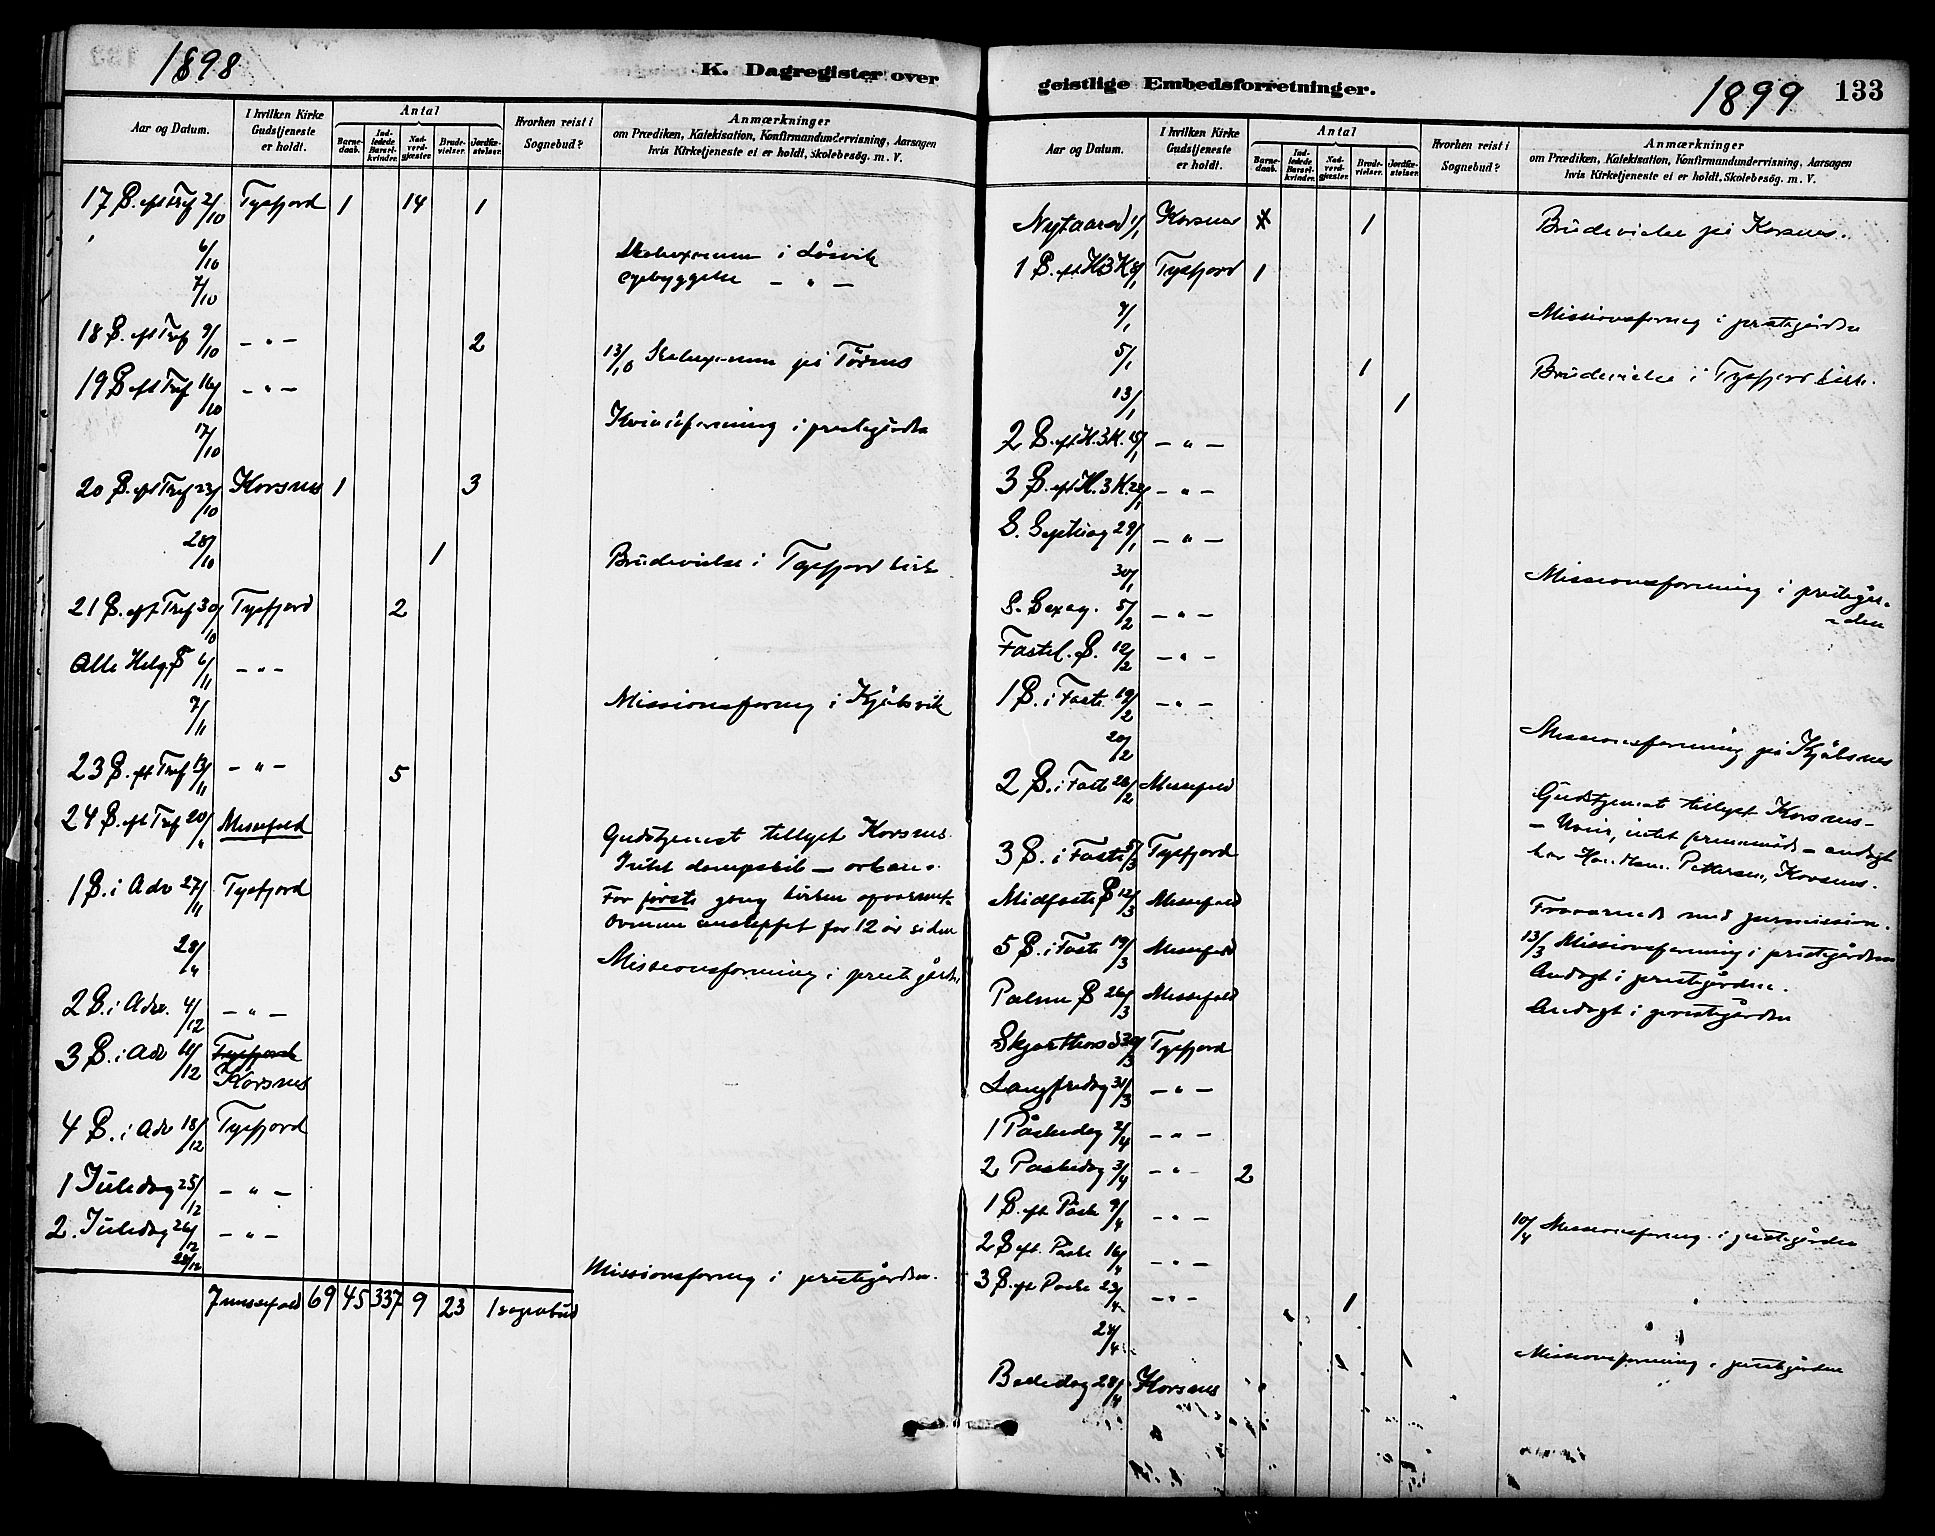 1898
K. Dagregister over
Aar og Datum.
I hvilken Kirke Gudstjeneste er holdt.
Antal
Barnedaab.
Indledede Barselkvinder.
Nadverdgjæster.
Brudevielser.
Jordfæstelser.
Hvorhen reist i Sognebud?
Anmærkninger
om Prædiken, Katekisation, Konfirmandundervisning, Aarsagen
hvis Kirketjeneste ei er holdt, Skolebesög. m. V.
17 S. eft Tref 2/10 Tysfjord 1 14 1
6/10 i
7/10 – " –
18 S. eft Tref 9/10 – " – 2
13/10 på
19 S eft Tref 16/10 – " –
17/10 i
20 S. eft Tref 23/10 Korsnes 1 3
28/10 1 Brudevielse i Tysfjord kirke
21 S. eft Tref 30/10 Tysfjord 2
Alle Helg. S 6/11 – " –
7/11 Missionsforng i Kjøbsvik
23 S. eft Tref 13/11 – " – 5
24 S. eft Tref 20/11 Messefald
Gudstjenest tillyst Korsnes.
Intet dampskib – orkan.
1 S. i Adv 27/11 Tysfjord
For første gang kirken opvarmet.
Ovnene for 12 år siden
28/11 Missionsforening i prestegården
2 S. i Adv. 4/12 – " –
3 S. i Adv 11/12 Tysfjord
Korsnes
4 S. i Adv 18/12 Tysfjord
1 Juledag 25/12 – " –
2. Juledag 26/12 – " –
28/12 Missionsforng i prestegården.
7 messefald 69 45 337 9 23 1 sognebud
geistlige Embedsforretninger.
1899 133
Aar og Datum.
I hvilken Kirke Gudstjeneste er holdt.
Antal
Barnedaab.
Indledede Barselkvinder.
Nadverdgjæster.
Brudevielser.
Jordfæstelser.
Hvorhen reist i Sognebud?
Anmærkninger
om Prædiken, Katekisation, Konfirmandundervisning, Aarsagen
hvis Kirketjeneste ei er holdt, Skolebesög. m. V.
Nytaarsd 1/1 Korsnes 1 Brudevielse på Korsnes.
1 S. eft H3K 8/1 Tysfjord 1
9/1 Missionsforng i prestegården
5/1 1 Brudevielse i Tysfjord kirke.
13/1 1
2 S. eft H.3K. 15/1 – " –
3 S. eft H.3K. 22/1 – " –
S. Septuag 29/1 – " –
30/1 Missionsforening i prestegår-
– den
S. Sexag. 5/2 – " –
Fastel. S. 12/2 – " –
1 S. i Faste 19/2 – " –
20/2 Missionsforening på Kjøbsnes
2 S. i Faste 26/2 Messefald
Gudstjenest tillyst Korsnes –
– Uveir, intet fremmøde – andagt
hos Pettersen, Korsnes.
3 S. i Faste 5/3 Tysfjord
Midfaste S 12/3 Messefald
Fraværende med permission.
13/3 Missionsforening i prestegården
5 S. i Faste 19/3 Messefald Andagt i prestegården.
Palme S 26/3 Messefald Andagt i prestegården
Skjærthorsd 30/3 Tysfjord
Langfredag 31/3 – " –
1 Påskedag 2/4 – " –
2 Paskedag 3/4 – " – 2
1 S. eft Påske 9/4 – " –
10/4 Missionsforeng. i prestegården
2 S eft. Påske 16/4 – " –
3 S. eft Paske 23/4 – " – 1
24/4 Missionsforening i prestegården
Bededag 28/4 Korsnes